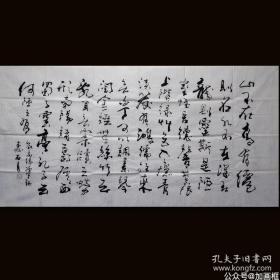 山不在高有仙
则名水不在深有
龙则灵斯是陋
室惟吾德馨苔痕
上阶绿草色入帘青
谈笑有鸿儒往来
无白丁可以调素琴
阅金经无丝竹之
乱耳无案牍之劳
形南阳诸葛庐西
蜀子云亭孔子云
何陋之有
孔夫子旧书网
公众号@加画框